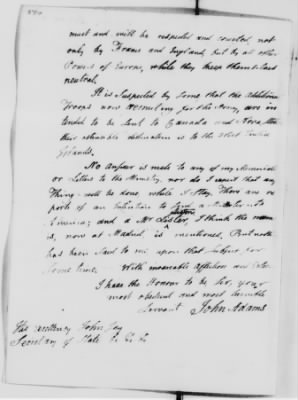 must and will be respected and courted, not
only by France and England, but by all other
Powers of Europe, while they keep themselves
neutral.
It is suspected by some that the additional
Troops now recruiting for the Army, are in
tended to be sent to Canada and Nova
their ostensible destination is to the West India
Islands.
No Answer is made to any of my Memorials
or Letters to the Ministry, nor do I expect that any
Thing will be done while I stay. There are re
ports of an Intention to send a Minister to
America; and a Mr Liston, I think the name
is, now at Madrid, is mentioned. But nothing
has been said to me upon that subject for
some time. With invariable affection
I have the Honour to be Sir, your
most obedient and most humble
Servant John Adams
His Excellency John Jay
Secretary of State